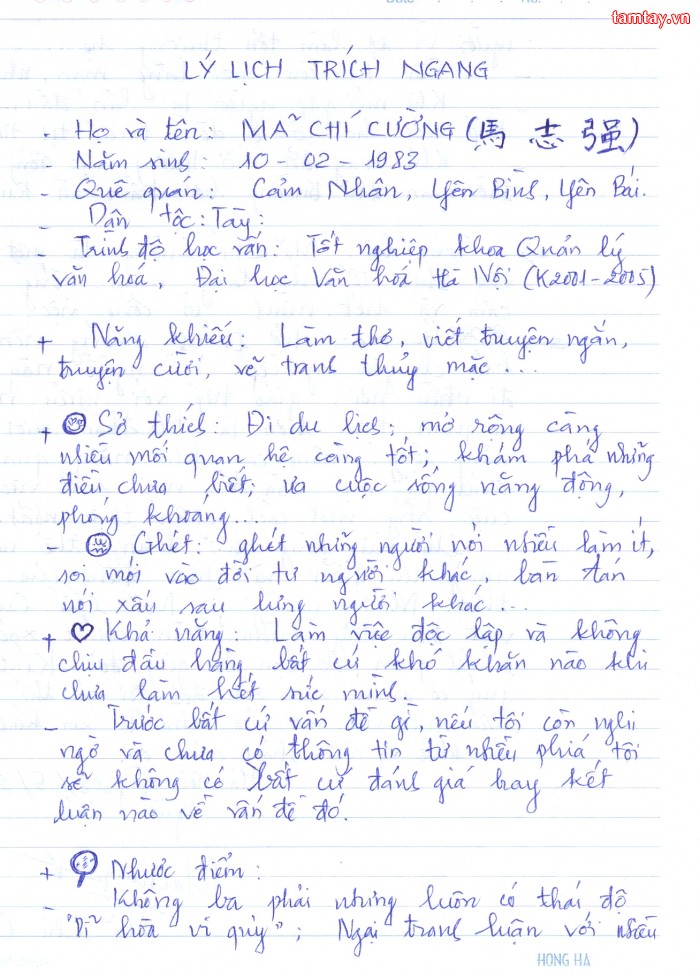 tamtay.vn
LÝ LỊCH TRÍCH NGANG
- Họ và tên: MÃ CHÍ CƯỜNG (馬 志 强)
- Năm sinh: 10 - 02 - 1983
- Quê quán: Cảm Nhân, Yên Bình, Yên Bái.
- Dân tộc: Tày.
- Trình độ học vấn: Tốt nghiệp khoa Quản lý
văn hoá, Đại học Văn hoá Hà Nội (K2001-2005)
+ Năng khiếu: Làm thơ, viết truyện ngắn,
truyện cười, vẽ tranh thủy mặc...
+ Sở thích: Đi du lịch; mở rộng càng
nhiều mối quan hệ càng tốt; khám phá những
điều chưa biết; ưa cuộc sống năng động,
phóng khoáng...
- Ghét: ghét những người nói nhiều làm ít,
soi mói vào đời tư người khác, bàn tán
nói xấu sau lưng người khác...
+ Khả năng: Làm việc độc lập và không
chịu đầu hàng bất cứ khó khăn nào khi
chưa làm hết sức mình.
- Trước bất cứ vấn đề gì, nếu tôi còn nghi
ngờ và chưa có thông tin từ nhiều phía, tôi
sẽ không có bất cứ đánh giá hay kết
luận nào về vấn đề đó.
+ Nhược điểm:
- Không ba phải nhưng luôn có thái độ
"Dĩ hòa vi qúy"; Ngại tranh luận với nhiều
HONG HA